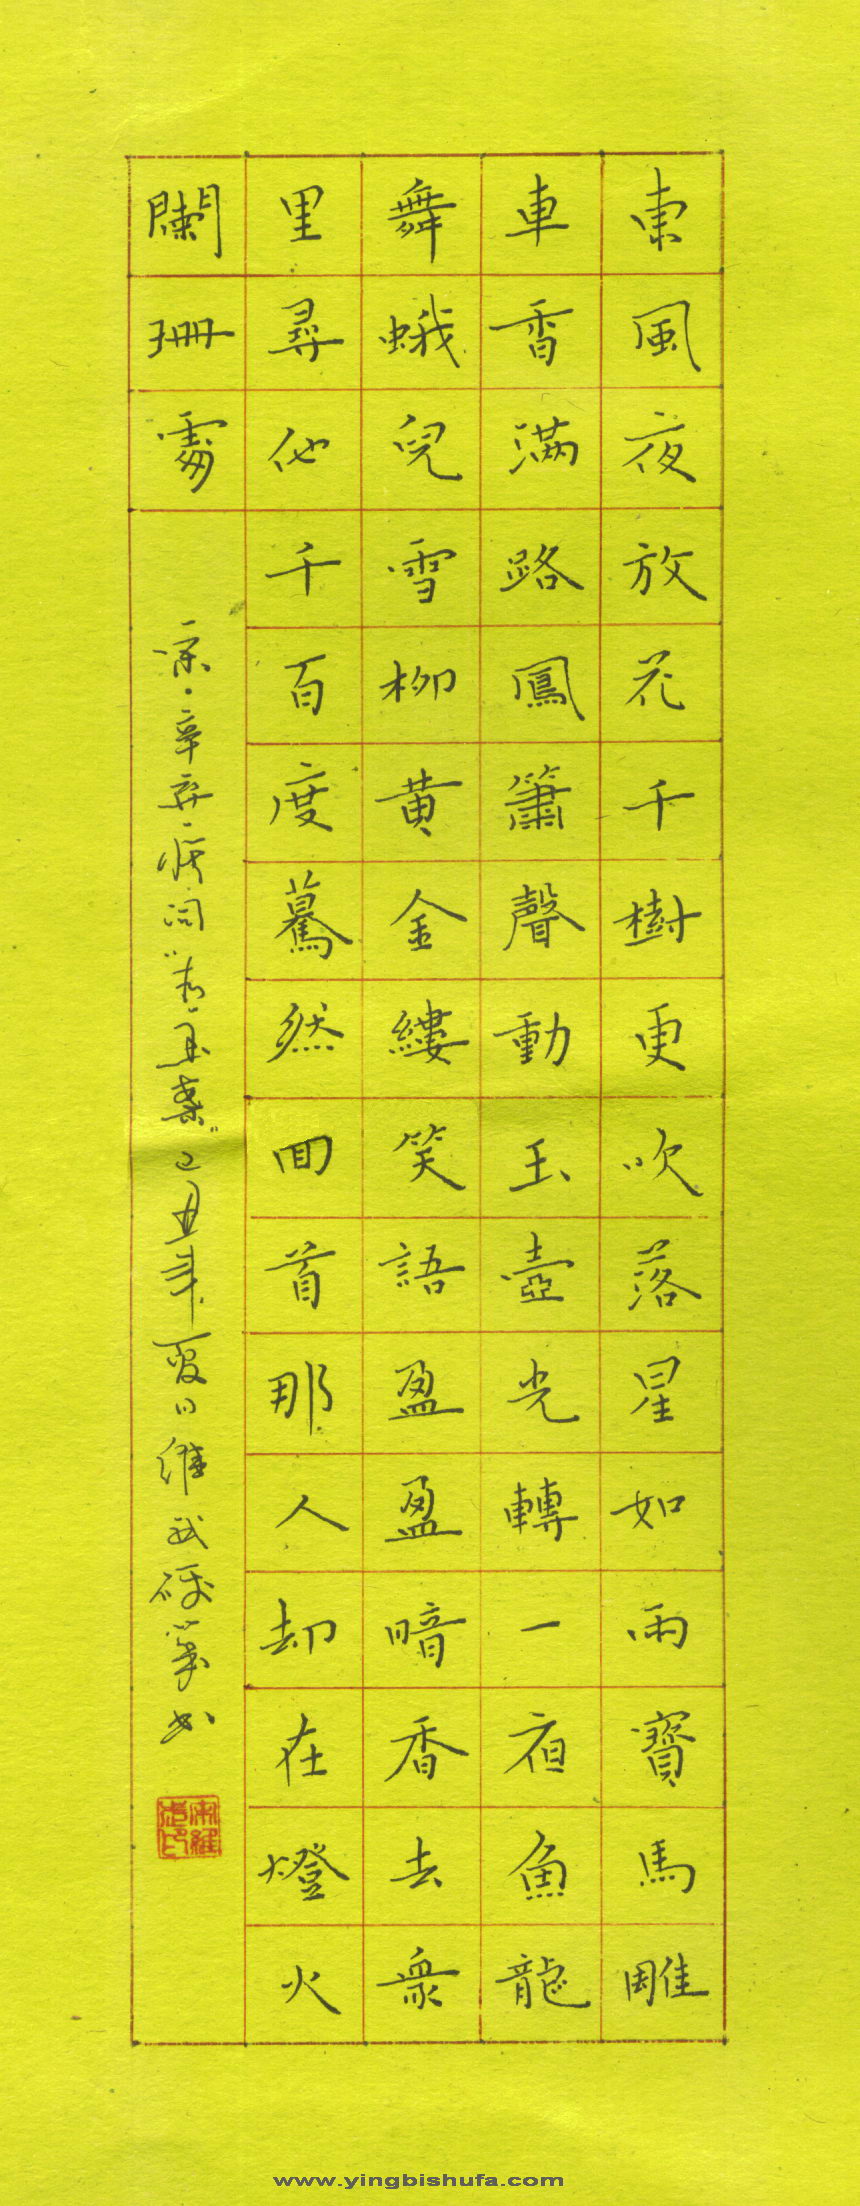 東風夜放花千樹更吹落星如雨寶馬雕
車香滿路鳳簫聲動玉壺光轉一夜魚龍
舞蛾兒雪柳黄金縷笑語盈盈暗香去衆
里尋他千百度驀然回首那人却在燈火
闌珊處
宋·辛弃疾词"青玉案"己丑年夏日維武硯筆书
www.yingbishufa.com